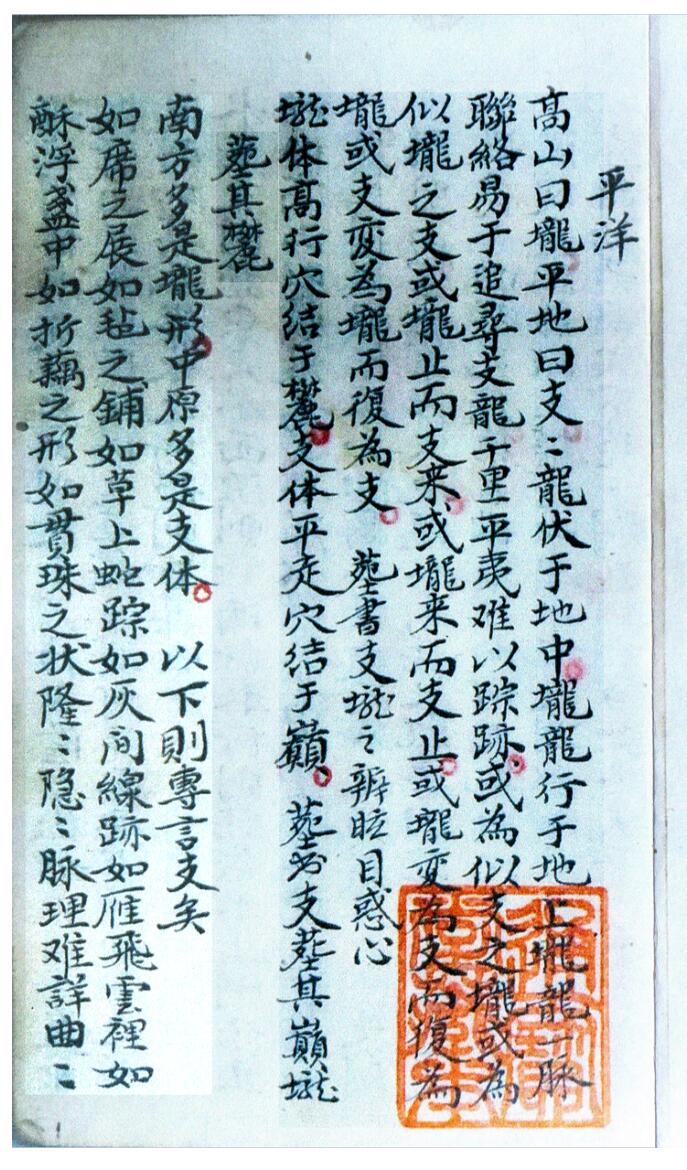 平洋
高山曰壠平地曰支〻龍伏于地中壠龍行于地上壠龍一脉
聯絡易于追尋支龍千里平夷难以踪跡或為似支之壠或為
似壠之支或壠止而支来或壠来而支止或壠変為支而復為
壠或支変為壠而復為支 葬書支壠之辨眩目惑心
壠体髙行穴结于麓支体平走穴结于巔 葬書支葬其巔壠
葬其麓
南方多是壠形中原多是支体 以下則專言支矣
如席之展如毡之鋪如草上蛇踪如灰间線跡如雁飛雲裡如
酥浮盞中如折藕之形如貫珠之状隆〻隐〻脉理难詳曲〻